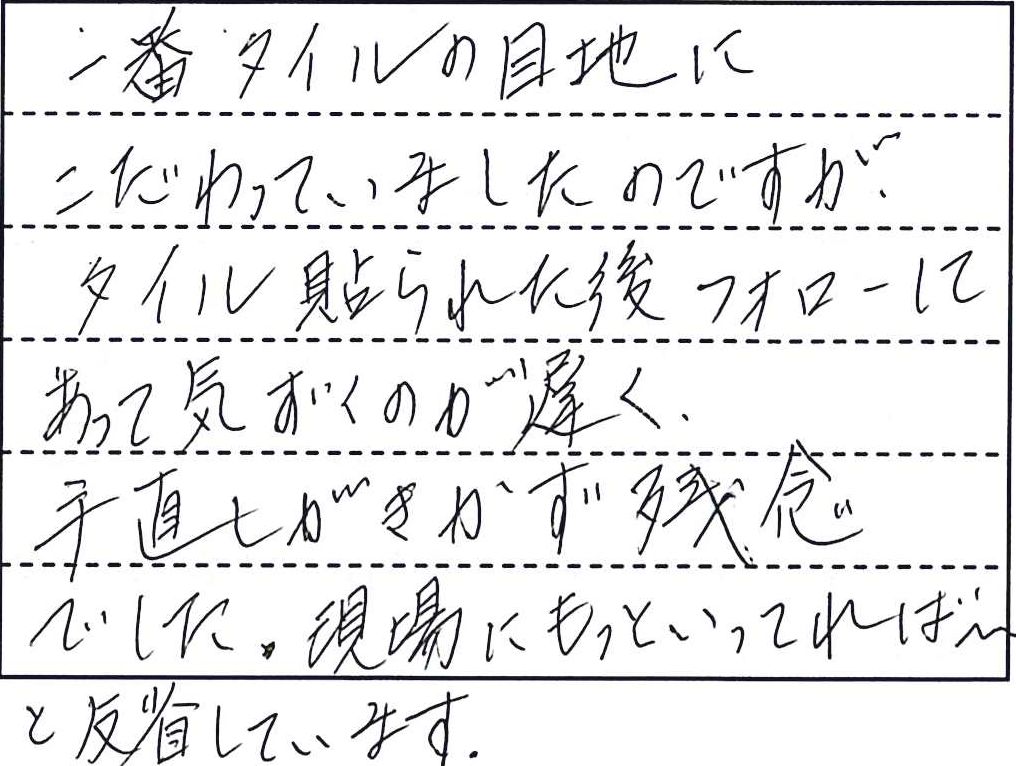 一番タイルの目地に
こだわっていましたのですが、
タイル貼られた後フォローして
あって気ずくのが遅く、
手直しがきかず残念
でした。現場にもっといってれば〜
と反省しています。